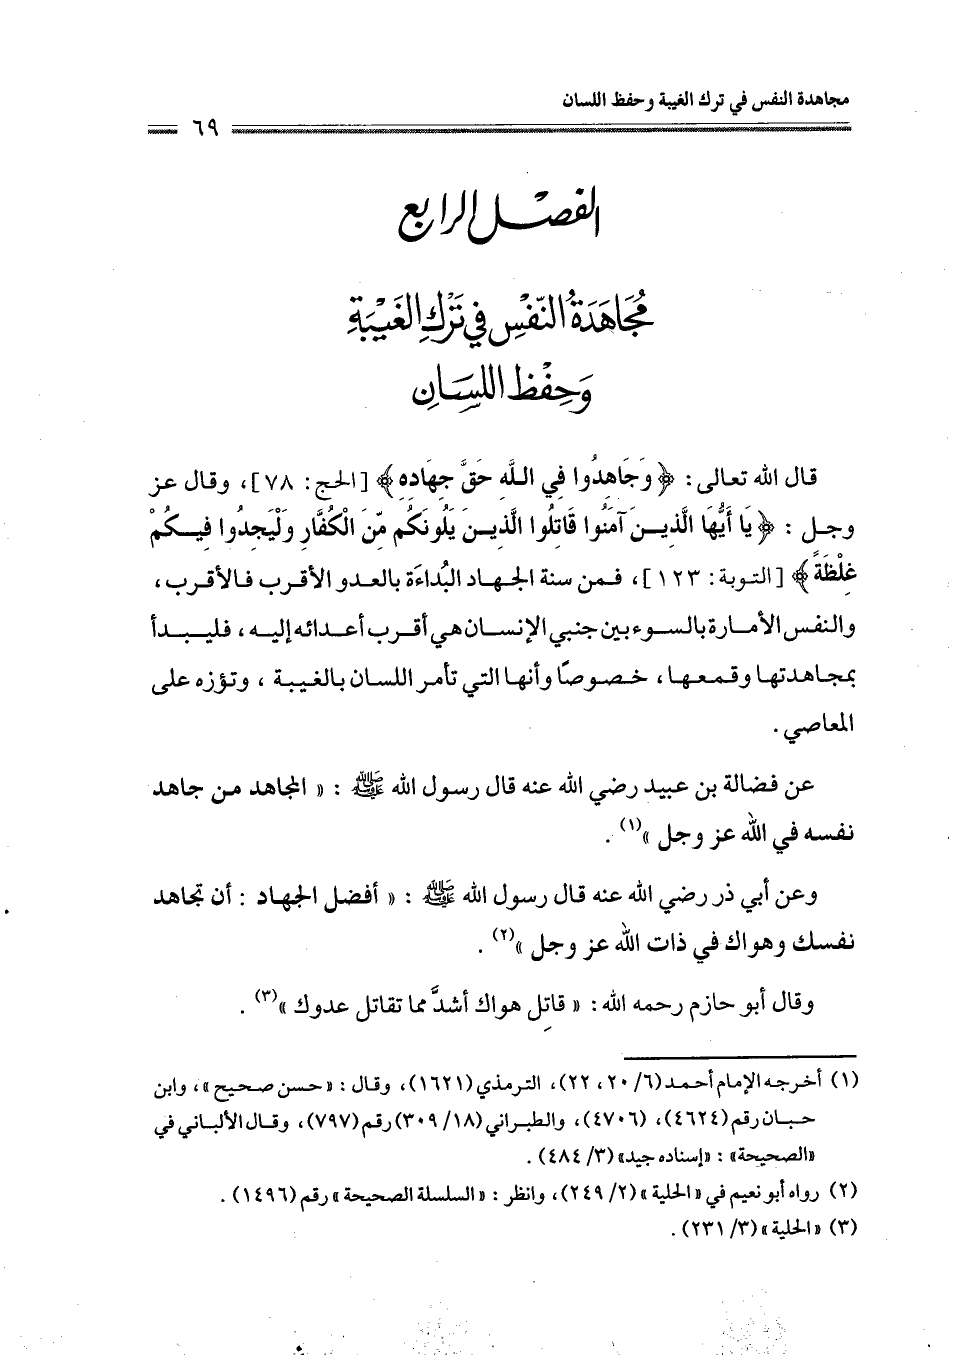 مجاهدة النفس في ترك الغيبة وحفظ اللسان
٦٩
الفصل الرابع
مُجَاهَدَةُ النَّفْسِ فِي تَرْكِ الغَيْبَةِ
وَحِفْظِ اللسَانِ
قال الله تعالى: ﴿وَجَاهِدُوا فِي اللَّهِ حَقَّ جِهَادِهِ﴾ [الحج: ٧٨]، وقال عز
وجل: ﴿يَا أَيُّهَا الَّذِينَ آمَنُوا قَاتِلُوا الَّذِينَ يَلُونَكُم مِّنَ الْكُفَّارِ وَلْيَجِدُوا فِيكُمْ
غِلْظَةً﴾ [التوبة: ١٢٣]، فمن سنة الجهاد البُداءَة بالعدو الأقرب فالأقرب،
والنفس الأمارة بالسوء بين جنبي الإنسان هي أقرب أعدائه إليه، فليبدأ
بمجاهدتها وقمعها، خصوصًا وأنها التي تأمر اللسان بالغيبة، وتؤزه على
المعاصي.
عن فضالة بن عبيد رضي الله عنه قال رسول الله ﷺ: «المجاهد من جاهد
نفسه في الله عز وجل»(١).
وعن أبي ذر رضي الله عنه قال رسول الله ﷺ: «أفضل الجهاد: أن تجاهد
نفسك وهواك في ذات الله عز وجل»(٢).
وقال أبو حازم رحمه الله: «قاتِل هواك أشدَّ مما تقاتل عدوك»(٣).
(١) أخرجه الإمام أحمد (٦/ ٢٠، ٢٢)، الترمذي (١٦٢١)، وقال: «حسن صحيح»، وابن
حبان رقم (٤٦٢٤)، (٤٧٠٦)، والطبراني (١٨/ ٣٠٩) رقم (٧٩٧)، وقال الألباني في
«الصحيحة»: «إسناده جيد» (٣/ ٤٨٤).
(٢) رواه أبو نعيم في «الحلية» (٢/ ٢٤٩)، وانظر: «السلسلة الصحيحة» رقم (١٤٩٦).
(٣) «الحلية» (٣/ ٢٣١).